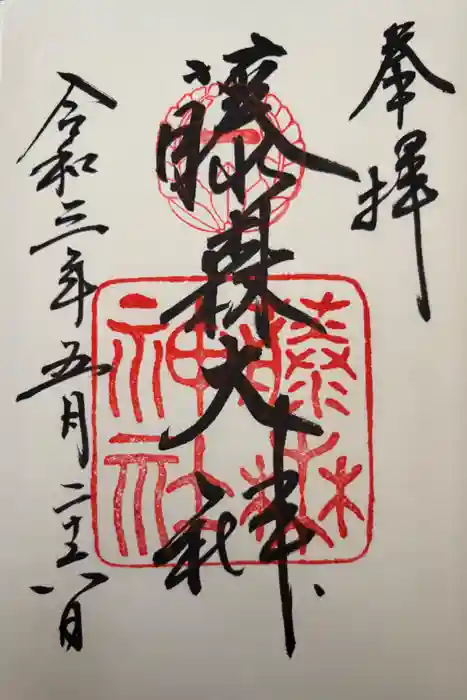 奉拝
藤森大神
令和三年五月二十八日
藤森
神社